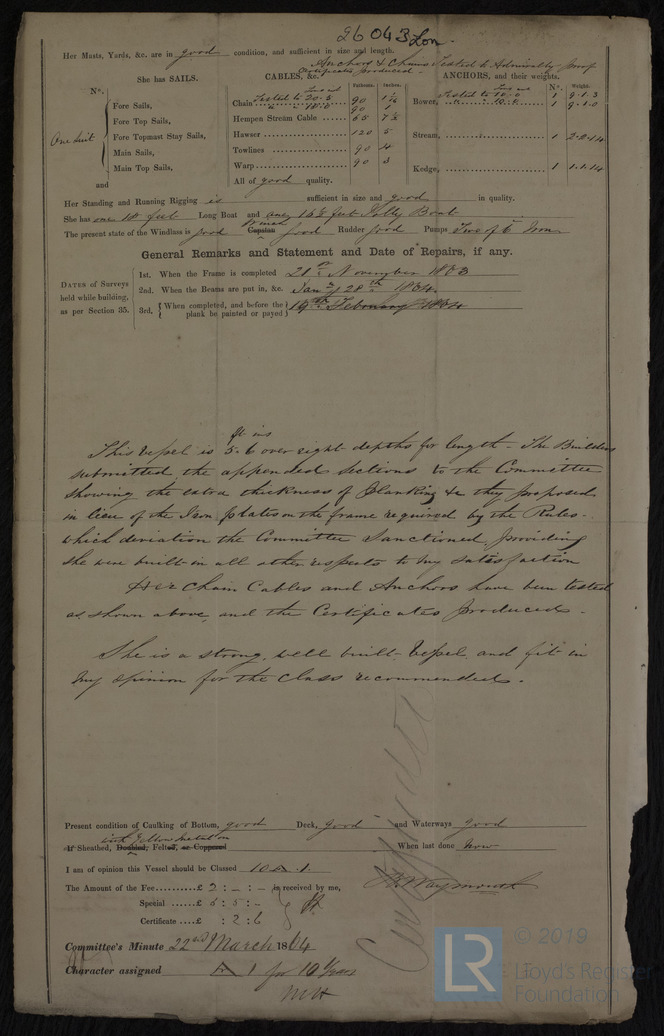 26043 Lon
Her Masts, Yards, &c. are in good condition, and sufficient in size and length.
Anchors & Chains Tested to Admiralty proof
Certificates produced -
She has SAILS.
CABLES, &c.
Fathoms. Inches.
ANCHORS, and their weights.
Nº. Weight.
Nº.
One Suit
Fore Sails,
Fore Top Sails,
Fore Topmast Stay Sails,
Main Sails,
Main Top Sails,
and
Chain Tested to 90
90
Hempen Stream Cable 65 7½
Hawser 120 5
Towlines 90 4
Warp 90 3
All of good quality.
Bower, Tested to 1 9.1.3
1 9.1.0
Stream, 1 2.2.14
Kedge, 1 1.1.14
Her Standing and Running Rigging is sufficient in size and good in quality.
She has one 18 feet Long Boat and one Jolly Boat
The present state of the Windlass is good Capstan good Rudder good Pumps Two of 6 Iron
General Remarks and Statement and Date of Repairs, if any.
DATES of Surveys held while building, as per Section 35.
1st. When the Frame is completed 21st November 1863
2nd. When the Beams are put in, &c. Jany 28th 1864.
3rd, { When completed, and before the plank be painted or payed } 19th February 1864
ft ins
This Vessel is 5.6 over eight depths for length - The Builders
submitted the appended sections to the Committee
showing the extra thickness of Planking &c they proposed
in lieu of the Iron plates on the frame required by the Rules -
which deviation the Committee Sanctioned, providing
she were built in all other respects to my satisfaction
Her Chain Cables and Anchors have been tested
as shown above, and the Certificates produced -
She is a strong, well built Vessel, and fit in
my opinion for the Class recommended.
Present condition of Caulking of Bottom, good Deck, good and Waterways good
with Yellow Metal on
If Sheathed, Doubled, Felted, or Coppered When last done Now
I am of opinion this Vessel should be Classed 10 A. 1.
The Amount of the Fee £ 2 : - : - is received by me,
B. Waymouth
Special £ 5 : 5 : -
Certificate £ : 2 : 6
Committee's Minute 22nd March 1864
Character assigned A 1 for 10 Years
© 2019
LR
Lloyd's Register
Foundation